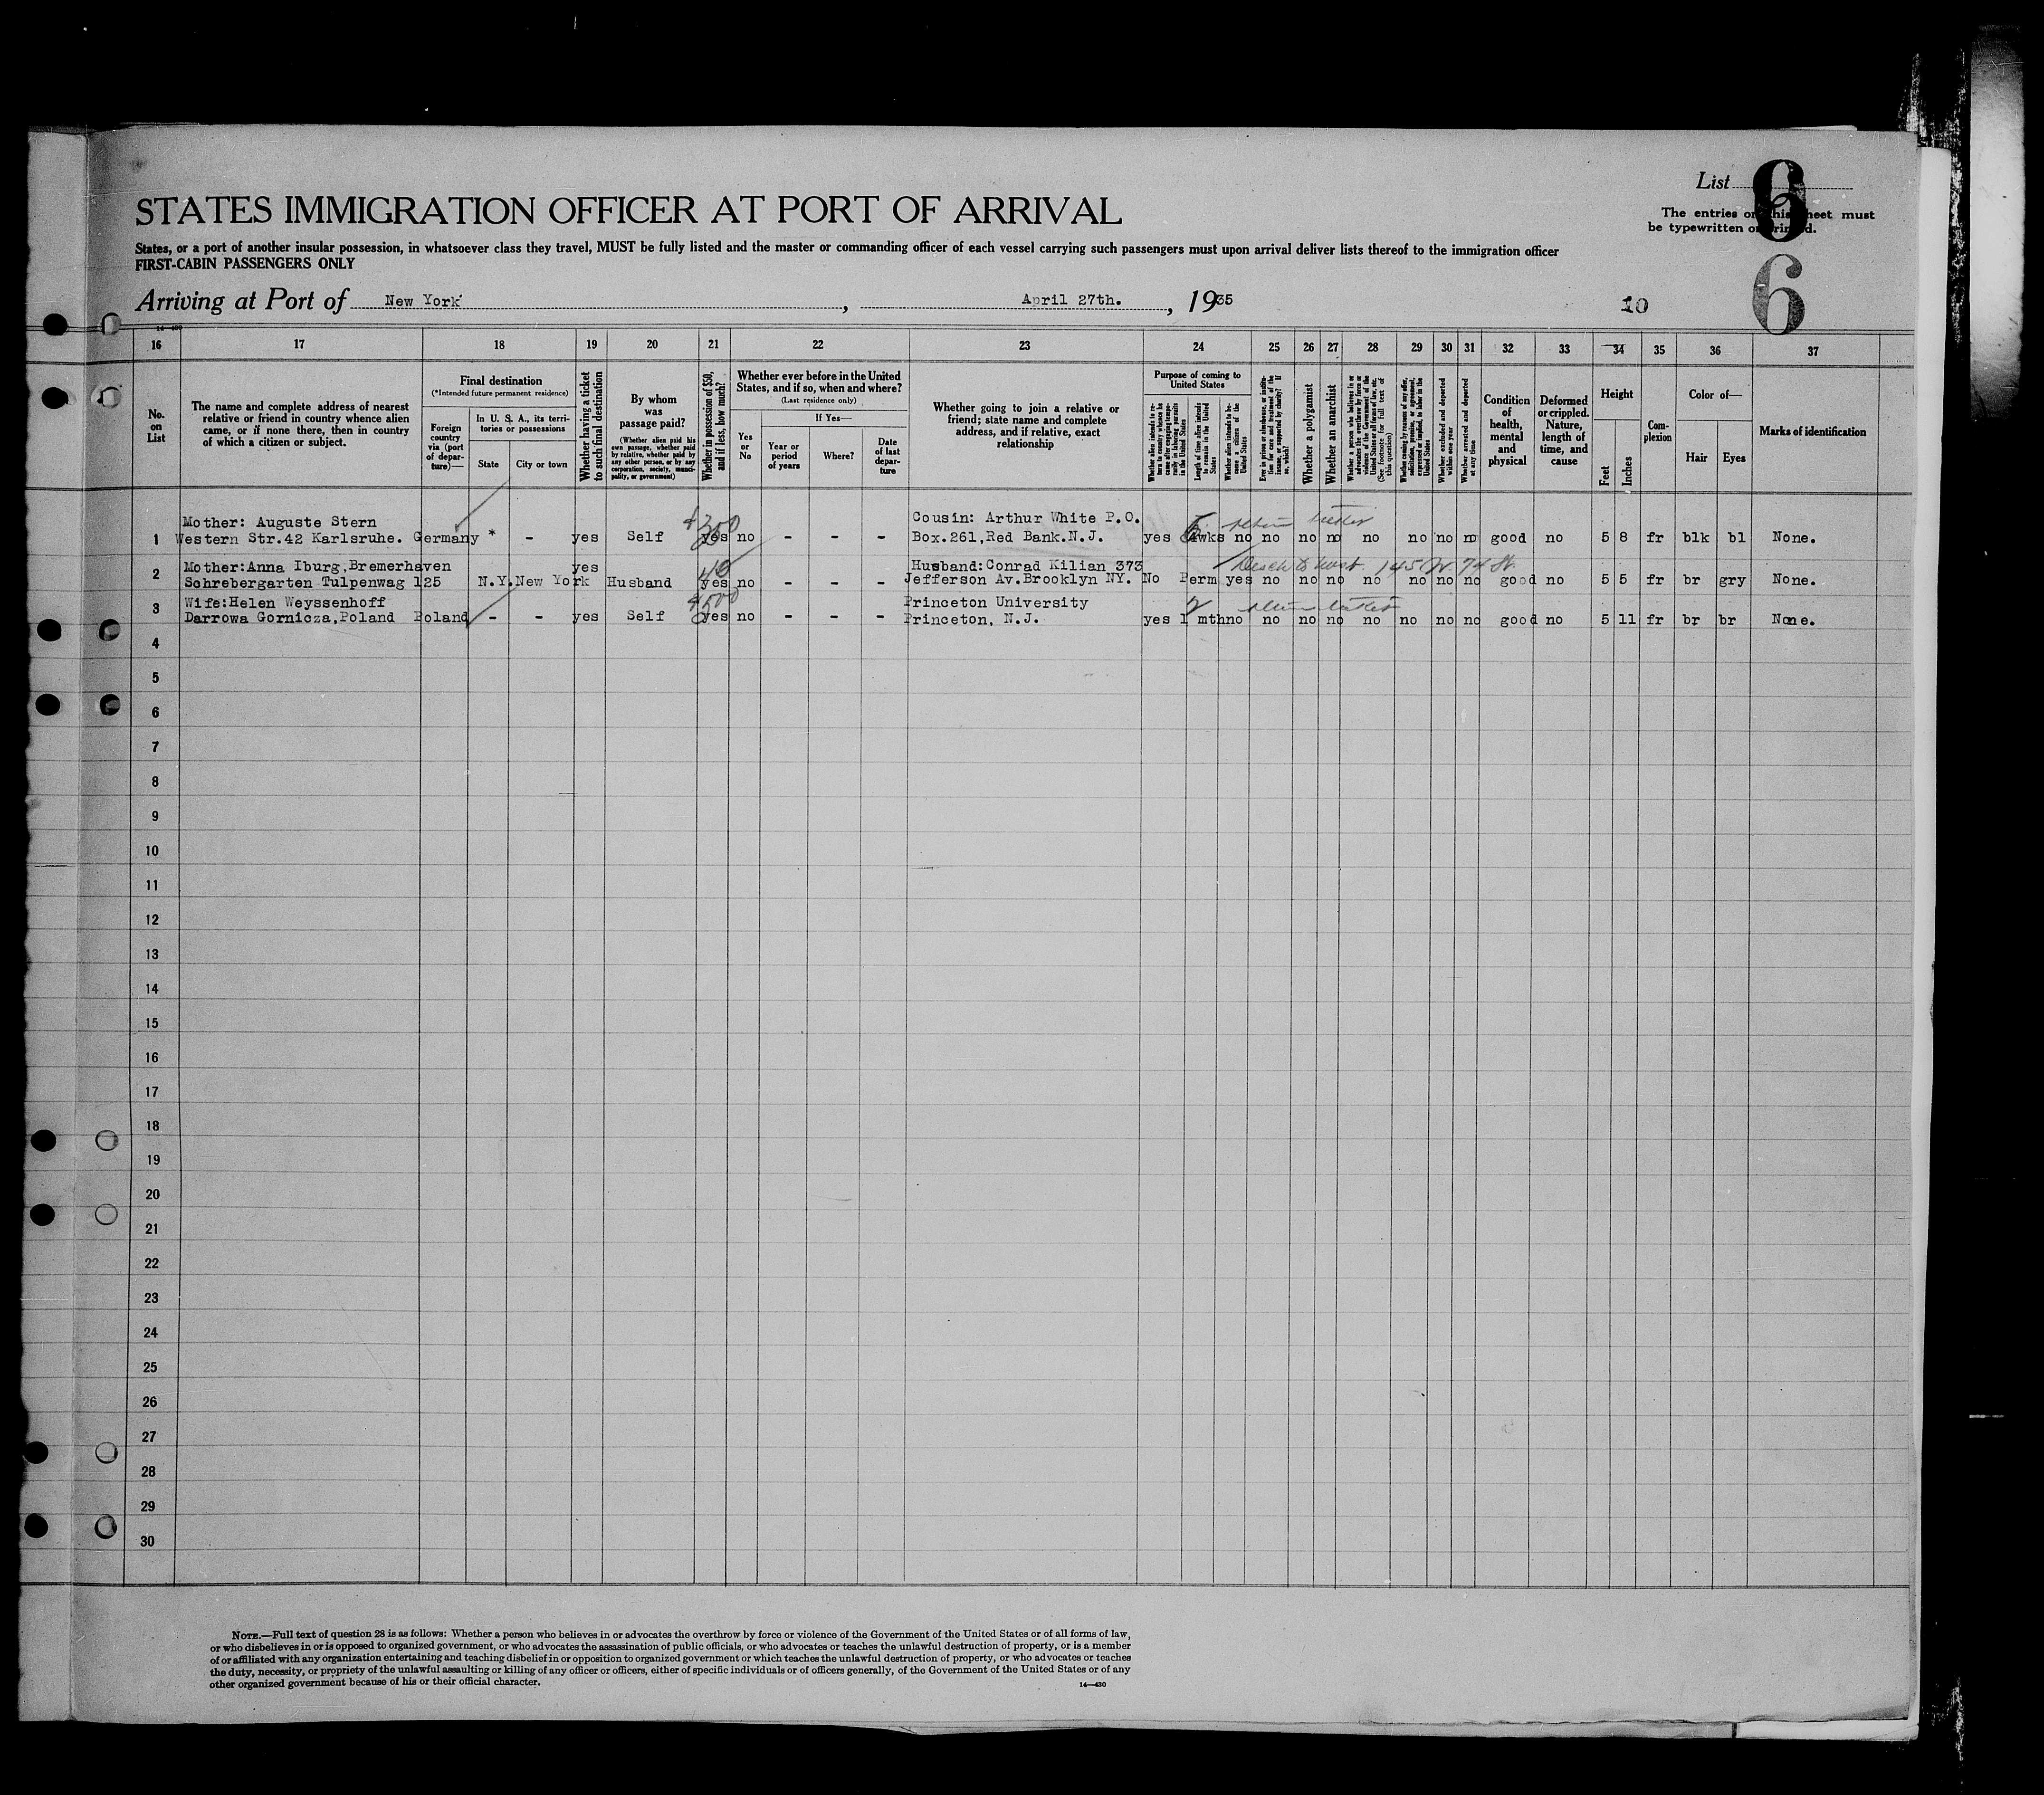 List 6
6
STATES IMMIGRATION OFFICER AT PORT OF ARRIVAL
The entries on this sheet must
be typewritten or printed.
States, or a port of another insular possession, in whatsoever class they travel, MUST be fully listed and the master or commanding officer of each vessel carrying such passengers must upon arrival deliver lists thereof to the immigration officer
FIRST-CABIN PASSENGERS ONLY
Arriving at Port of New York, April 27th., 1935
10
14—430
16 17 18 19 20 21 22 23 24 25 26 27 28 29 30 31 32 33 34 35 36 37
No. on List
The name and complete address of nearest
relative or friend in country whence alien
came, or if none there, then in country
of which a citizen or subject.
Final destination
(*Intended future permanent residence)
Foreign country via (port of departure)—
In U. S. A., its territories or possessions
State
City or town
Whether having a ticket to such final destination
By whom was passage paid?
(Whether alien paid his own passage, whether paid by relative, whether paid by any other person, or by any corporation, society, municipality, or government)
Whether in possession of $50, and if less, how much?
Whether ever before in the United States, and if so, when and where?
(Last residence only)
If Yes—
Yes or No
Year or period of years
Where?
Date of last departure
Whether going to join a relative or
friend; state name and complete
address, and if relative, exact
relationship
Purpose of coming to United States
Whether alien intends to return to country whence he came after engaging temporarily in laboring pursuits in the United States
Length of time alien intends to remain in the United States
Whether alien intends to become a citizen of the United States
Ever in prison or almshouse, or institution for care and treatment of the insane, or supported by charity? If so, which?
Whether a polygamist
Whether an anarchist
Whether a person who believes in or advocates the overthrow by force or violence of the Government of the United States or all forms of law, etc. (See footnote for full text of this question)
Whether coming by reason of any offer, solicitation, promise, or agreement, expressed or implied, to labor in the United States
Whether excluded and deported within one year
Whether arrested and deported at any time
Condition of health, mental and physical
Deformed or crippled. Nature, length of time, and cause
Height
Feet
Inches
Complexion
Color of—
Hair
Eyes
Marks of identification
Mother: Auguste Stern $300 Cousin: Arthur White P.O.
1 Western Str.42 Karlsruhe. Germany * - yes Self yes no - - - Box.261,Red Bank.N.J. yes wks no no no no no no no no good no 5 8 fr blk bl None.
Mother:Anna Iburg,Bremerhaven yes 40 Husband:Conrad Kilian 373 to husb. 145 W. 74 St.
2 Sohrebergarten Tulpenwag 125 N.Y. New York Husband yes no - - - Jefferson Av.Brooklyn NY. No Perm yes no no no no no no no good no 5 5 fr br gry None.
Wife:Helen Weyssenhoff $500 Princeton University 2
3 Darrowa Gornicza,Poland Poland - - yes Self yes no - - - Princeton, N.J. yes 1 mth no no no no no no no no good no 5 11 fr br br None.
4
5
6
7
8
9
10
11
12
13
14
15
16
17
18
19
20
21
22
23
24
25
26
27
28
29
30
NOTE.—Full text of question 28 is as follows: Whether a person who believes in or advocates the overthrow by force or violence of the Government of the United States or of all forms of law,
or who disbelieves in or is opposed to organized government, or who advocates the assassination of public officials, or who advocates or teaches the unlawful destruction of property, or is a member
of or affiliated with any organization entertaining and teaching disbelief in or opposition to organized government or which teaches the unlawful destruction of property, or who advocates or teaches
the duty, necessity, or propriety of the unlawful assaulting or killing of any officer or officers, either of specific individuals or of officers generally, of the Government of the United States or of any
other organized government because of his or their official character.
14—430